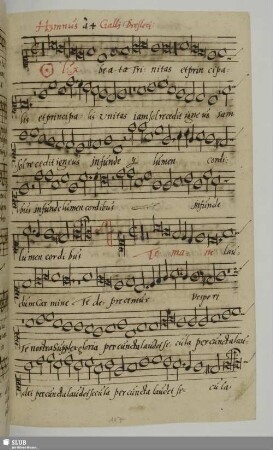 Hymnus à 4 Galli Dressleri
O lux beata trinitas et prin cipa
lis et principa lis unitas iam sol recedit igneus iam
sol recedit igneus Infunde lumen cordi
bus Infunde lumen cordibus Infunde
lumen cordi bus Te ma ne lau
dum carmine Te de precemur Vesperi
Te nostra supplex gloria per cuncta laudet se cula per cuncta lau
det per cuncta laudet secula per cuncta laudet se cula
SLUB